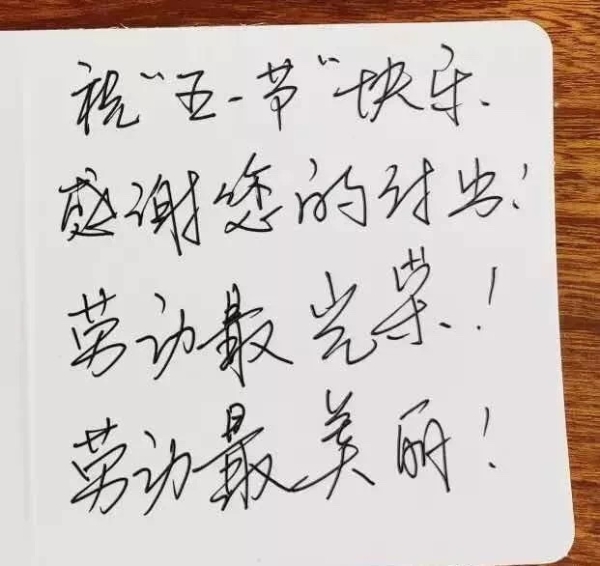 祝“五一节”快乐.
感谢您的付出!
劳动最光荣.!
劳动最美丽!